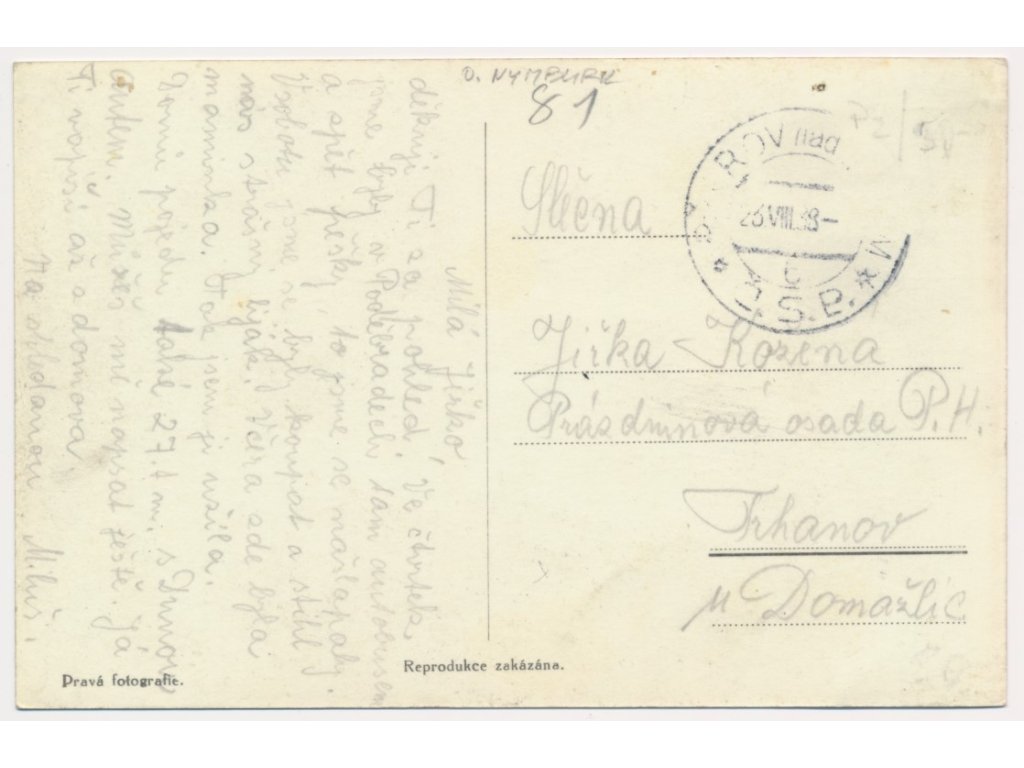 O. NYMBURK
81
Milá Jiřko,
děkuji Ti za pohled. Ve čtvrtek
jsme byly v Poděbradech tam autobusem
a zpět pěšky, to jsme se našlapaly.
V sobotu jsme se byly koupat a stihl
nás strašný liják. Včera zde byla
maminka. Tak jsem ji viděla.
Domů pojedu také 27. t. m. s
autem. Můžeš mně napsat ještě. Já
Ti napíši až z domova.
Na shledanou
ROV nad
26 VIII. 38 –
Č.S.P.
Slečna
Jiřka Kozena
Prázdninová osada P. H.
Trhanov
u Domažlic
Pravá fotografie.
Reprodukce zakázána.